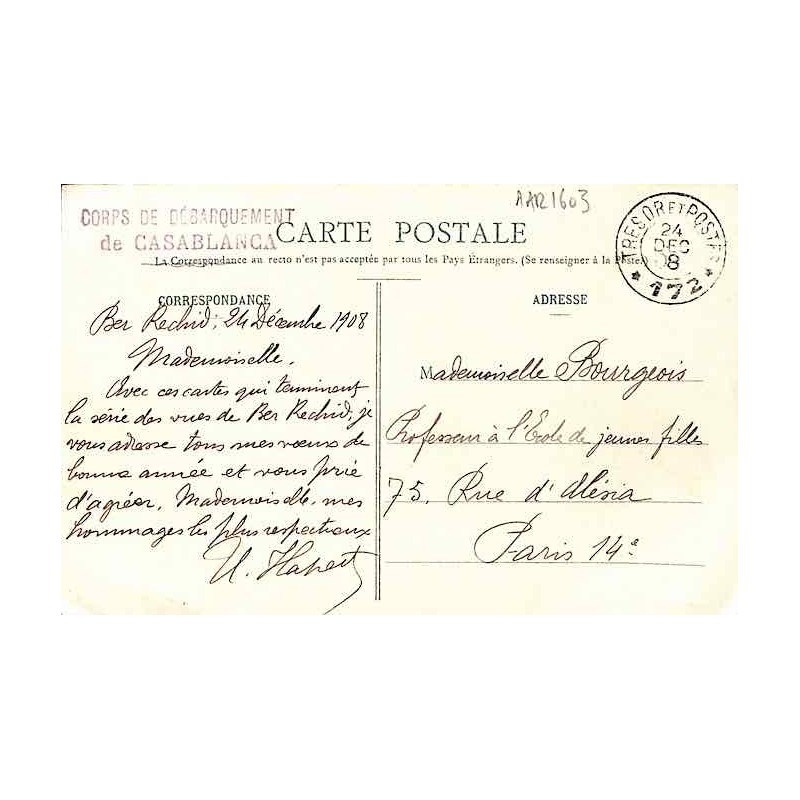 AAR1603
CORPS DE DÉBARQUEMENT
de CASABLANCA
CARTE POSTALE
TRESOR ET POSTES
24
DEC
08
* 172 *
La Correspondance au recto n'est pas acceptée par tous les Pays Étrangers. (Se renseigner à la Poste.)
CORRESPONDANCE
Ber Rechid, 24 Décembre 1908
Mademoiselle,
Avec ces cartes qui terminent
la série des vues de Ber Rechid, je
vous adresse tous mes vœux de
bonne année et vous prie
d'agréer, Mademoiselle, mes
hommages les plus respectueux
ADRESSE
Mademoiselle Bourgeois
Professeur à l'Ecole de jeunes filles
75, Rue d'Alésia
Paris 14e